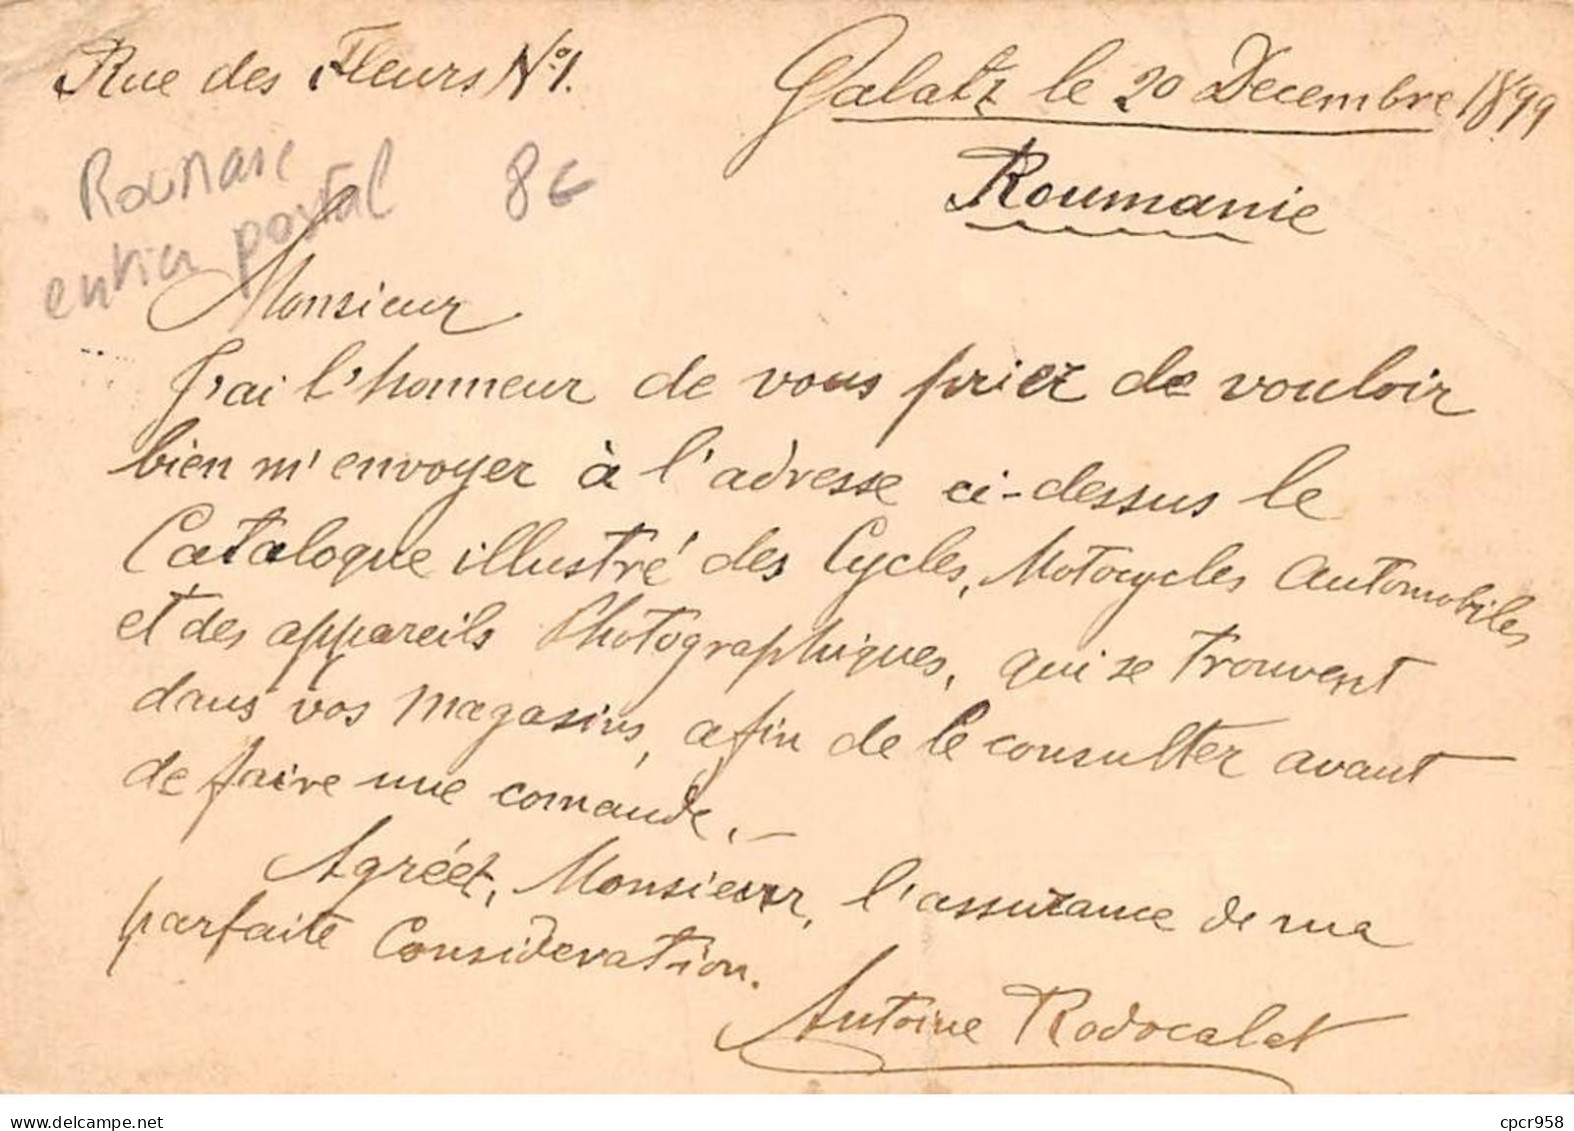 Rue des Fleurs No 1.
Galatz le 20 Decembre 1899
Roumanie
entier postal
8€
Monsieur
J'ai l'honneur de vous prier de vouloir
bien m'envoyer à l'adresse ci-dessus le
Catalogue illustré des Cycles, Motocycles Automobiles
et des appareils Photographiques, qui se trouvent
dans vos magasins, afin de le consulter avant
de faire une comande. —
Agréet, Monsieur, l'assurance de ma
parfaite Consideration.
Antoine Rodocalat
delcampe.net
cpcr958